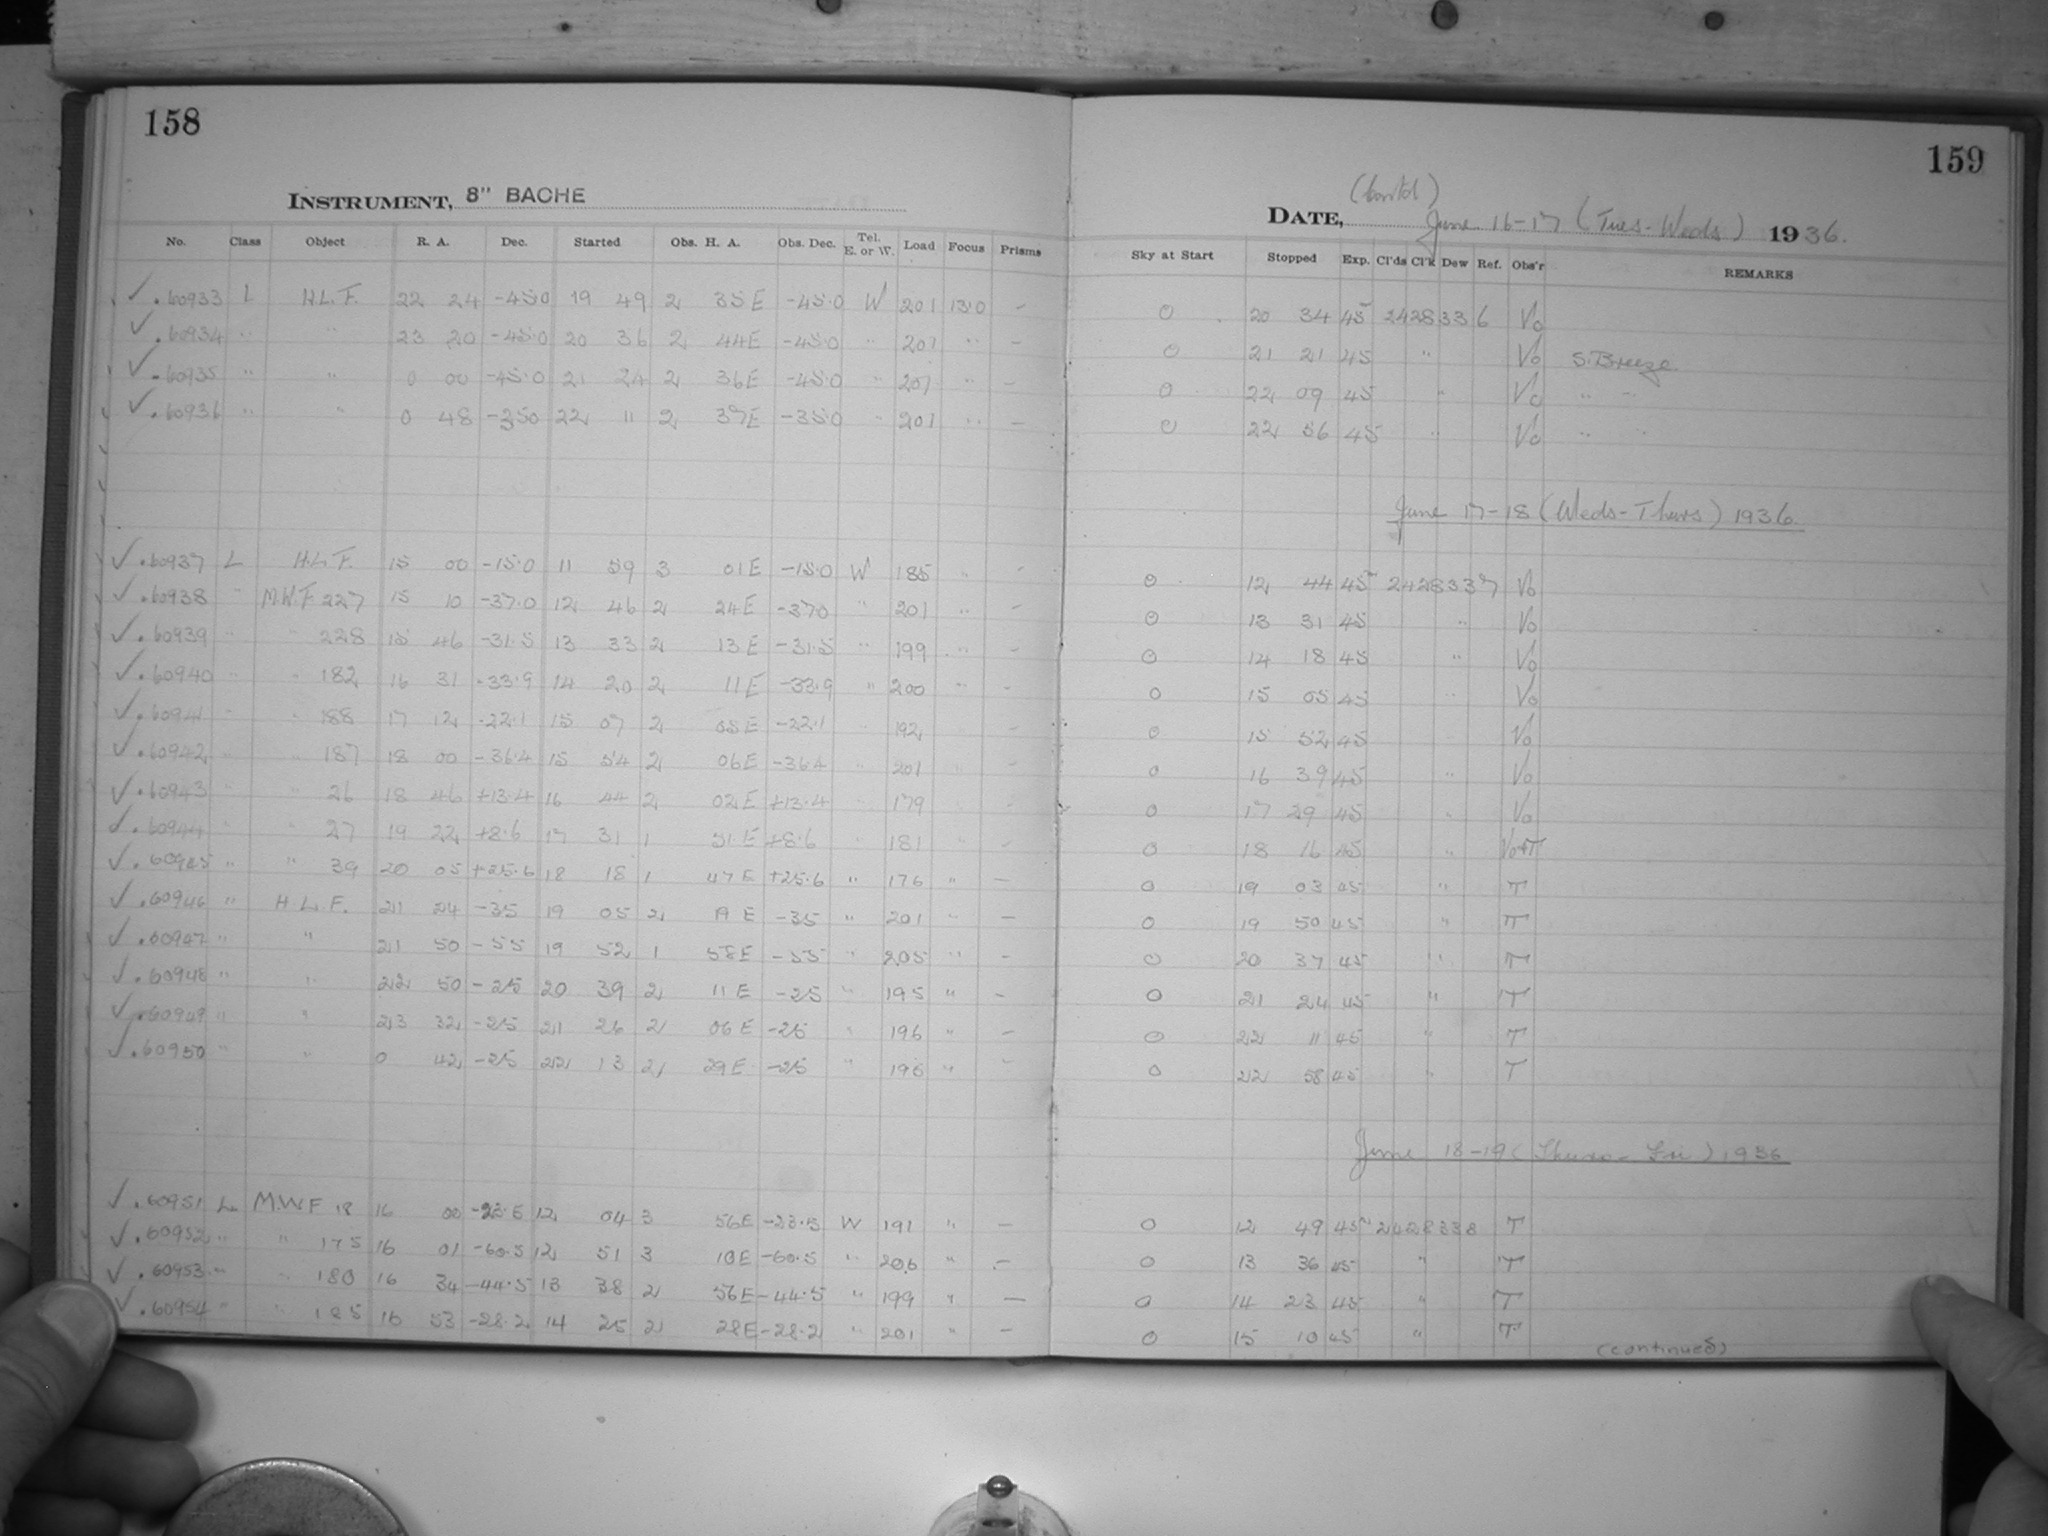 158
INSTRUMENT, 8" BACHE
No. Class Object R. A. Dec. Started Obs. H. A. Obs. Dec. Tel. E. or W. Load Focus Prisms
✓ .60933 L H.L.F. 22 24 -45.0 19 49 2 35E -45.0 W 201 13.0 -
✓ .60934 " " 23 20 -45.0 20 36 2 44E -45.0 " 201 " -
✓ .60935 " " 0 00 -45.0 21 24 2 36E -45.0 " 201 " -
✓ .60936 " " 0 48 -35.0 22 11 2 37E -35.0 " 201 " -
✓ .60937 L H.L.F. 15 00 -15.0 11 59 3 01E -15.0 W 185 " -
✓ .60938 " M.W.F 227 15 10 -37.0 12 46 2 24E -37.0 " 201 " -
✓ .60939 " " 228 15 46 -31.5 13 33 2 13E -31.5 " 199 " -
✓ .60940 " " 182 16 31 -33.9 14 20 2 11E -33.9 " 200 " -
✓ .60941 " " 188 17 12 -22.1 15 07 2 05E -22.1 " 192 " -
✓ .60942 " " 187 18 00 -36.4 15 54 2 06E -36.4 " 201 " -
✓ .60943 " " 26 18 46 +13.4 16 44 2 02E +13.4 " 179 " -
✓ .60944 " " 27 19 22 +8.6 17 31 1 51E +8.6 " 181 " -
✓ .60945 " " 39 20 05 +25.6 18 18 1 47E +25.6 " 176 " -
✓ .60946 " H.L.F. 21 24 -35 19 05 2 19E -35 " 201 " -
✓ .60947 " " 21 50 -55 19 52 1 58E -55 " 205 " -
✓ .60948 " " 22 50 -25 20 39 2 11E -25 " 195 " -
✓ .60949 " " 23 32 -25 21 26 2 06E -25 " 196 " -
✓ .60950 " " 0 42 -25 22 13 2 29E -25 " 196 " -
✓ .60951 L M.W.F 18 16 00 -23.5 12 04 3 56E -23.5 W 191 " -
✓ .60952 " " 175 16 01 -60.5 12 51 3 10E -60.5 " 206 " -
✓ .60953 " " 180 16 34 -44.5 13 38 2 56E -44.5 " 199 " -
✓ .60954 " " 185 16 53 -28.2 14 25 2 28E -28.2 " 201 " -
159
(contd)
DATE, June 16-17 (Tues-Weds) 1936.
Sky at Start Stopped Exp. Cl'ds Cl'k Dew Ref. Obs'r REMARKS
0 20 34 45 2428336 Vo
0 21 21 45 " Vo S. Breeze
0 22 09 45 " Vo " "
0 22 56 45 " Vo " "
June 17-18 (Weds-Thurs) 1936.
0 12 44 45 2428337 Vo
0 13 31 45 " Vo
0 14 18 45 " Vo
0 15 05 45 " Vo
0 15 52 45 " Vo
0 16 39 45 " Vo
0 17 29 45 " Vo
0 18 16 45 " Vo+T
0 19 03 45 " T
0 19 50 45 " T
0 20 37 45 " T
0 21 24 45 " T
0 22 11 45 " T
0 22 58 45 " T
June 18-19 (Thurs-Fri) 1936
0 12 49 45 2428338 T
0 13 36 45 " T
0 14 23 45 " T
0 15 10 45 " T
(continued)